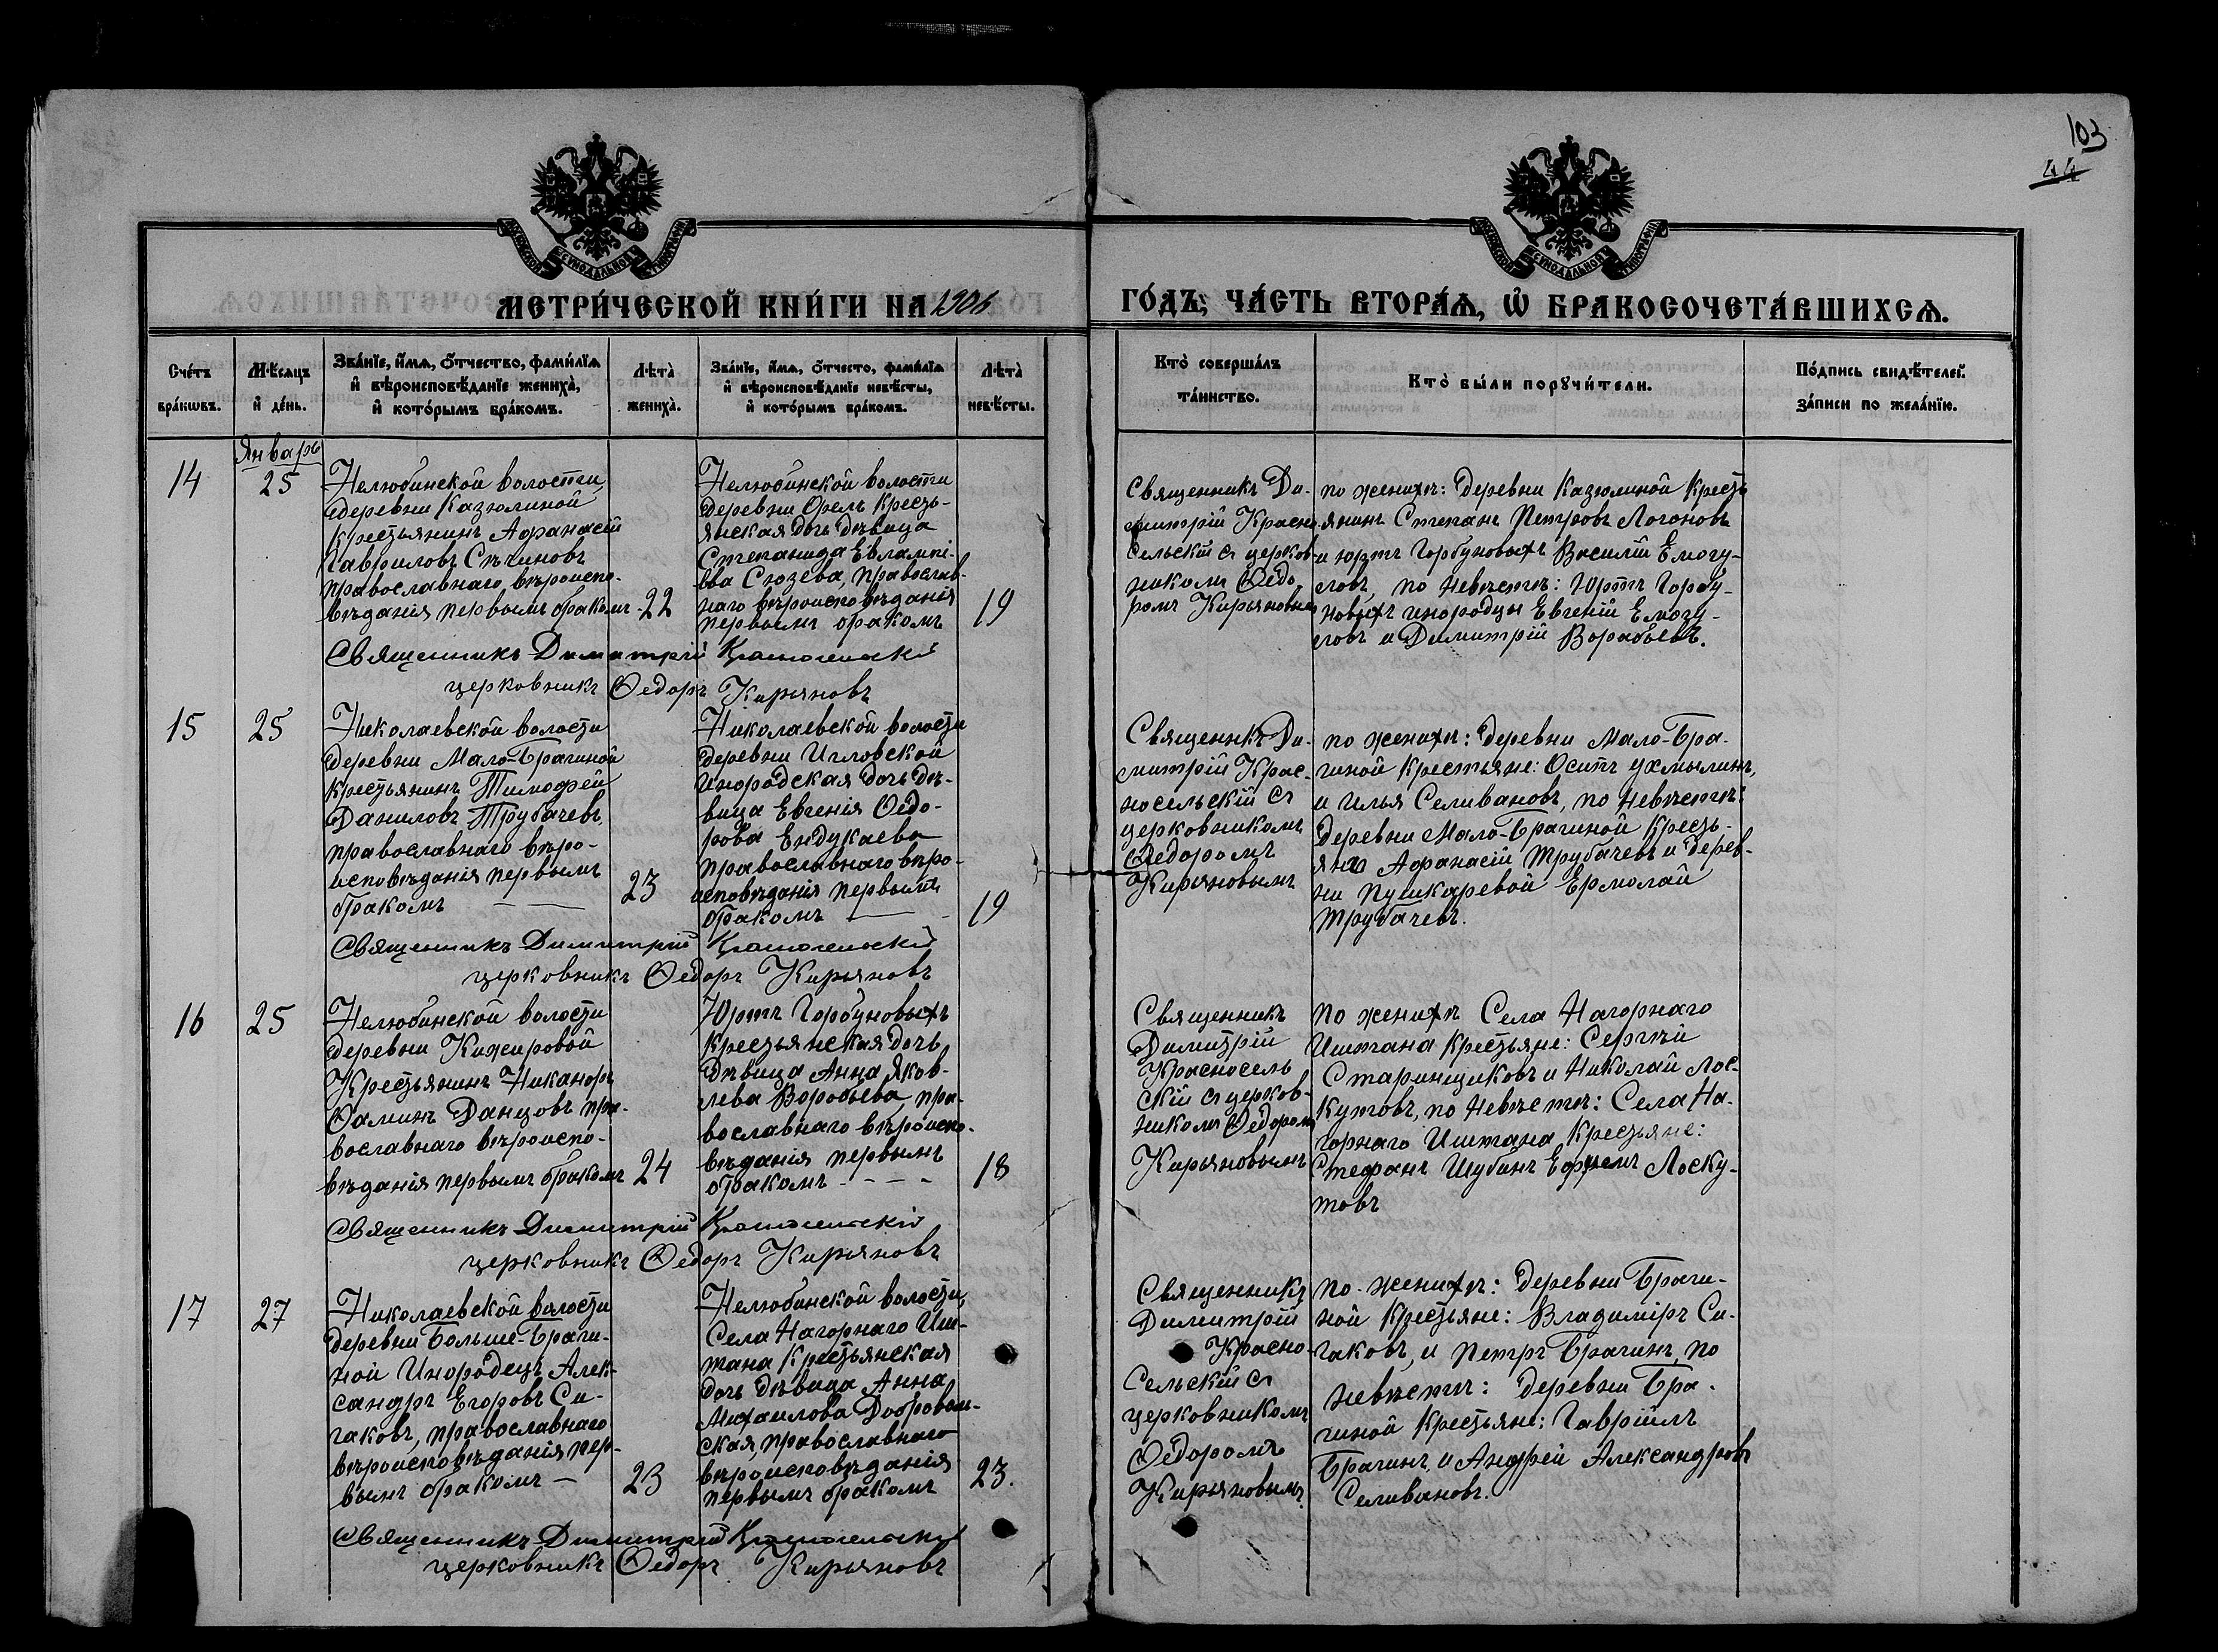 103
44
МОСКОВСКОЙ СУНОДАЛЬНОЙ ТИПОГРАФІИ
МОСКОВСКОЙ СУНОДАЛЬНОЙ ТИПОГРАФІИ
МЕТРИ́ЧЕСКОЙ КНИ́ГИ НА 1906
ГО́ДЪ, ЧА́СТЬ ВТОРА́Ѧ, Ѿ БРАКОСОЧЕТА́ВШИХСѦ.
Сче́тъ
бра́кѡвъ.
Мѣ́сяцъ
и҆ де́нь.
Зва́нїе, и҆́мѧ, ѻ҆́тчество, фами́лїѧ
и҆ вѣроисповѣ́данїе жениха̀,
и҆ кото́рымъ бра́комъ.
Лѣта̀
жениха̀.
Зва́нїе, и҆́мѧ, ѻ҆́тчесто, фами́лїѧ
и҆ вѣроисповѣ́данїе невѣ́сты,
и҆ кото́рымъ бра́комъ.
Лѣта̀
невѣ́сты.
Кто̀ соверша́лъ
та́инство.
Кто̀ бы́ли порꙋчи́тели.
По́дпись свидѣ́телей
за́писи по жела́нїю.
Январь
14
25
Нелюбинской волости,
деревни Казюлиной
крестьянинъ Афанасій
Гавриловъ Сѣчиновъ
православнаго вѣроиспо-
вѣданія первымъ бракомъ
22
Нелюбинской волости
деревни Орелъ Кресть-
янская дочь дѣвица
Степанида Евлампі-
ева Сюзева, православ-
наго вѣроисповѣданія
первымъ бракомъ
19
Священникъ Ди-
митрій Красно
сельскій съ церков-
никомъ Ѳедо
ромъ Кирьяновымъ
по женихѣ: деревни Казюлиной Кресть
янинъ Степанъ Петровъ Логоновъ
и юртъ Горбуновыхъ Василій Емогу-
ловъ, по невѣстѣ: Юртъ Горбу-
новыхъ инородцы Евгеній Емогу-
ловъ и Димитрій Воробьевъ.
Священникъ Димитрій Красносельскій
церковникъ Ѳедоръ Кирьяновъ
15
25
Николаевской волости
деревни Мало-Брагиной
крестьянинъ Тимофей
Даниловъ Трубачевъ,
православнаго вѣро-
исповѣданія первымъ
бракомъ
23
Николаевской волости
деревни Игловской
Инородская дочь дѣ-
вица Евгенія Ѳедо-
рова Ендукаева
православнаго вѣро-
исповѣданія первымъ
бракомъ
19
Священикъ Ди-
митрій Крас-
носельскій съ
церковникомъ
Ѳедоромъ
Кирьяновымъ
по женихѣ: деревни Мало-Бра-
гиной Крестьяне: Осипъ Ухмылинъ,
и Илья Селивановъ, по невѣстѣ:
деревни Мало-Брагиной Кресть-
яне Афанасій Трубачевъ и дерев-
ни Пушкаревой Ермолай
Трубачевъ.
Священникъ Димитрій Красносельскій
церковникъ Ѳедоръ Кирьяновъ
16
25
Нелюбинской волости
деревни Кижировой
Крестьянинъ Никаноръ
Ѳоминъ Данцовъ пра-
вославнаго вѣроиспо-
вѣданія первымъ бракомъ
24
Юртъ Горбуновыхъ
крестьянская дочь
дѣвица Анна Яков-
лева Воробьева, пра-
вославнаго вѣроиспо-
вѣданія первымъ
бракомъ
18
Священникъ
Димитрій
Красносель
скій съ церков-
никомъ Ѳедоромъ
Кирьяновымъ
по женихѣ Села Нагорнаго
Иштана Крестьяне: Сергѣй
Старинщиковъ и Николай Лос-
кутовъ, по невѣстѣ: Села На-
горнаго Иштана Крестьяне:
Стефанъ Шубинъ Ефремъ Лоску-
товъ
Священникъ Димитрій Красносельскій
церковникъ Ѳедоръ Кирьяновъ
17
27
Николаевской волости
деревни Больше-Браги-
ной Инородецъ Алек-
сандръ Егоровъ Си-
гаковъ, православнаго
вѣроисповѣданія пер-
вымъ бракомъ
23
Нелюбинской волости,
Села Нагорнаго Иш-
тана Крестьянская
дочь дѣвица Анна
Михаилова Доброволь-
ская, православнаго
вѣроисповѣданія
первымъ бракомъ
23.
Священникъ
Димитрій
Красно-
Сельскій съ
церковникомъ
Ѳедоромъ
Кирьяновымъ
по женихѣ: деревни Браги-
ной Крестьяне: Владиміръ Си-
гаковъ, и Петръ Брагинъ, по
невѣстѣ: деревни Бра-
гиной Крестьяне: Гавріилъ
Брагинъ, и Андрей Александровъ
Селивановъ.
Священникъ Димитрій Красносельскій
церковникъ Ѳедоръ Кирьяновъ